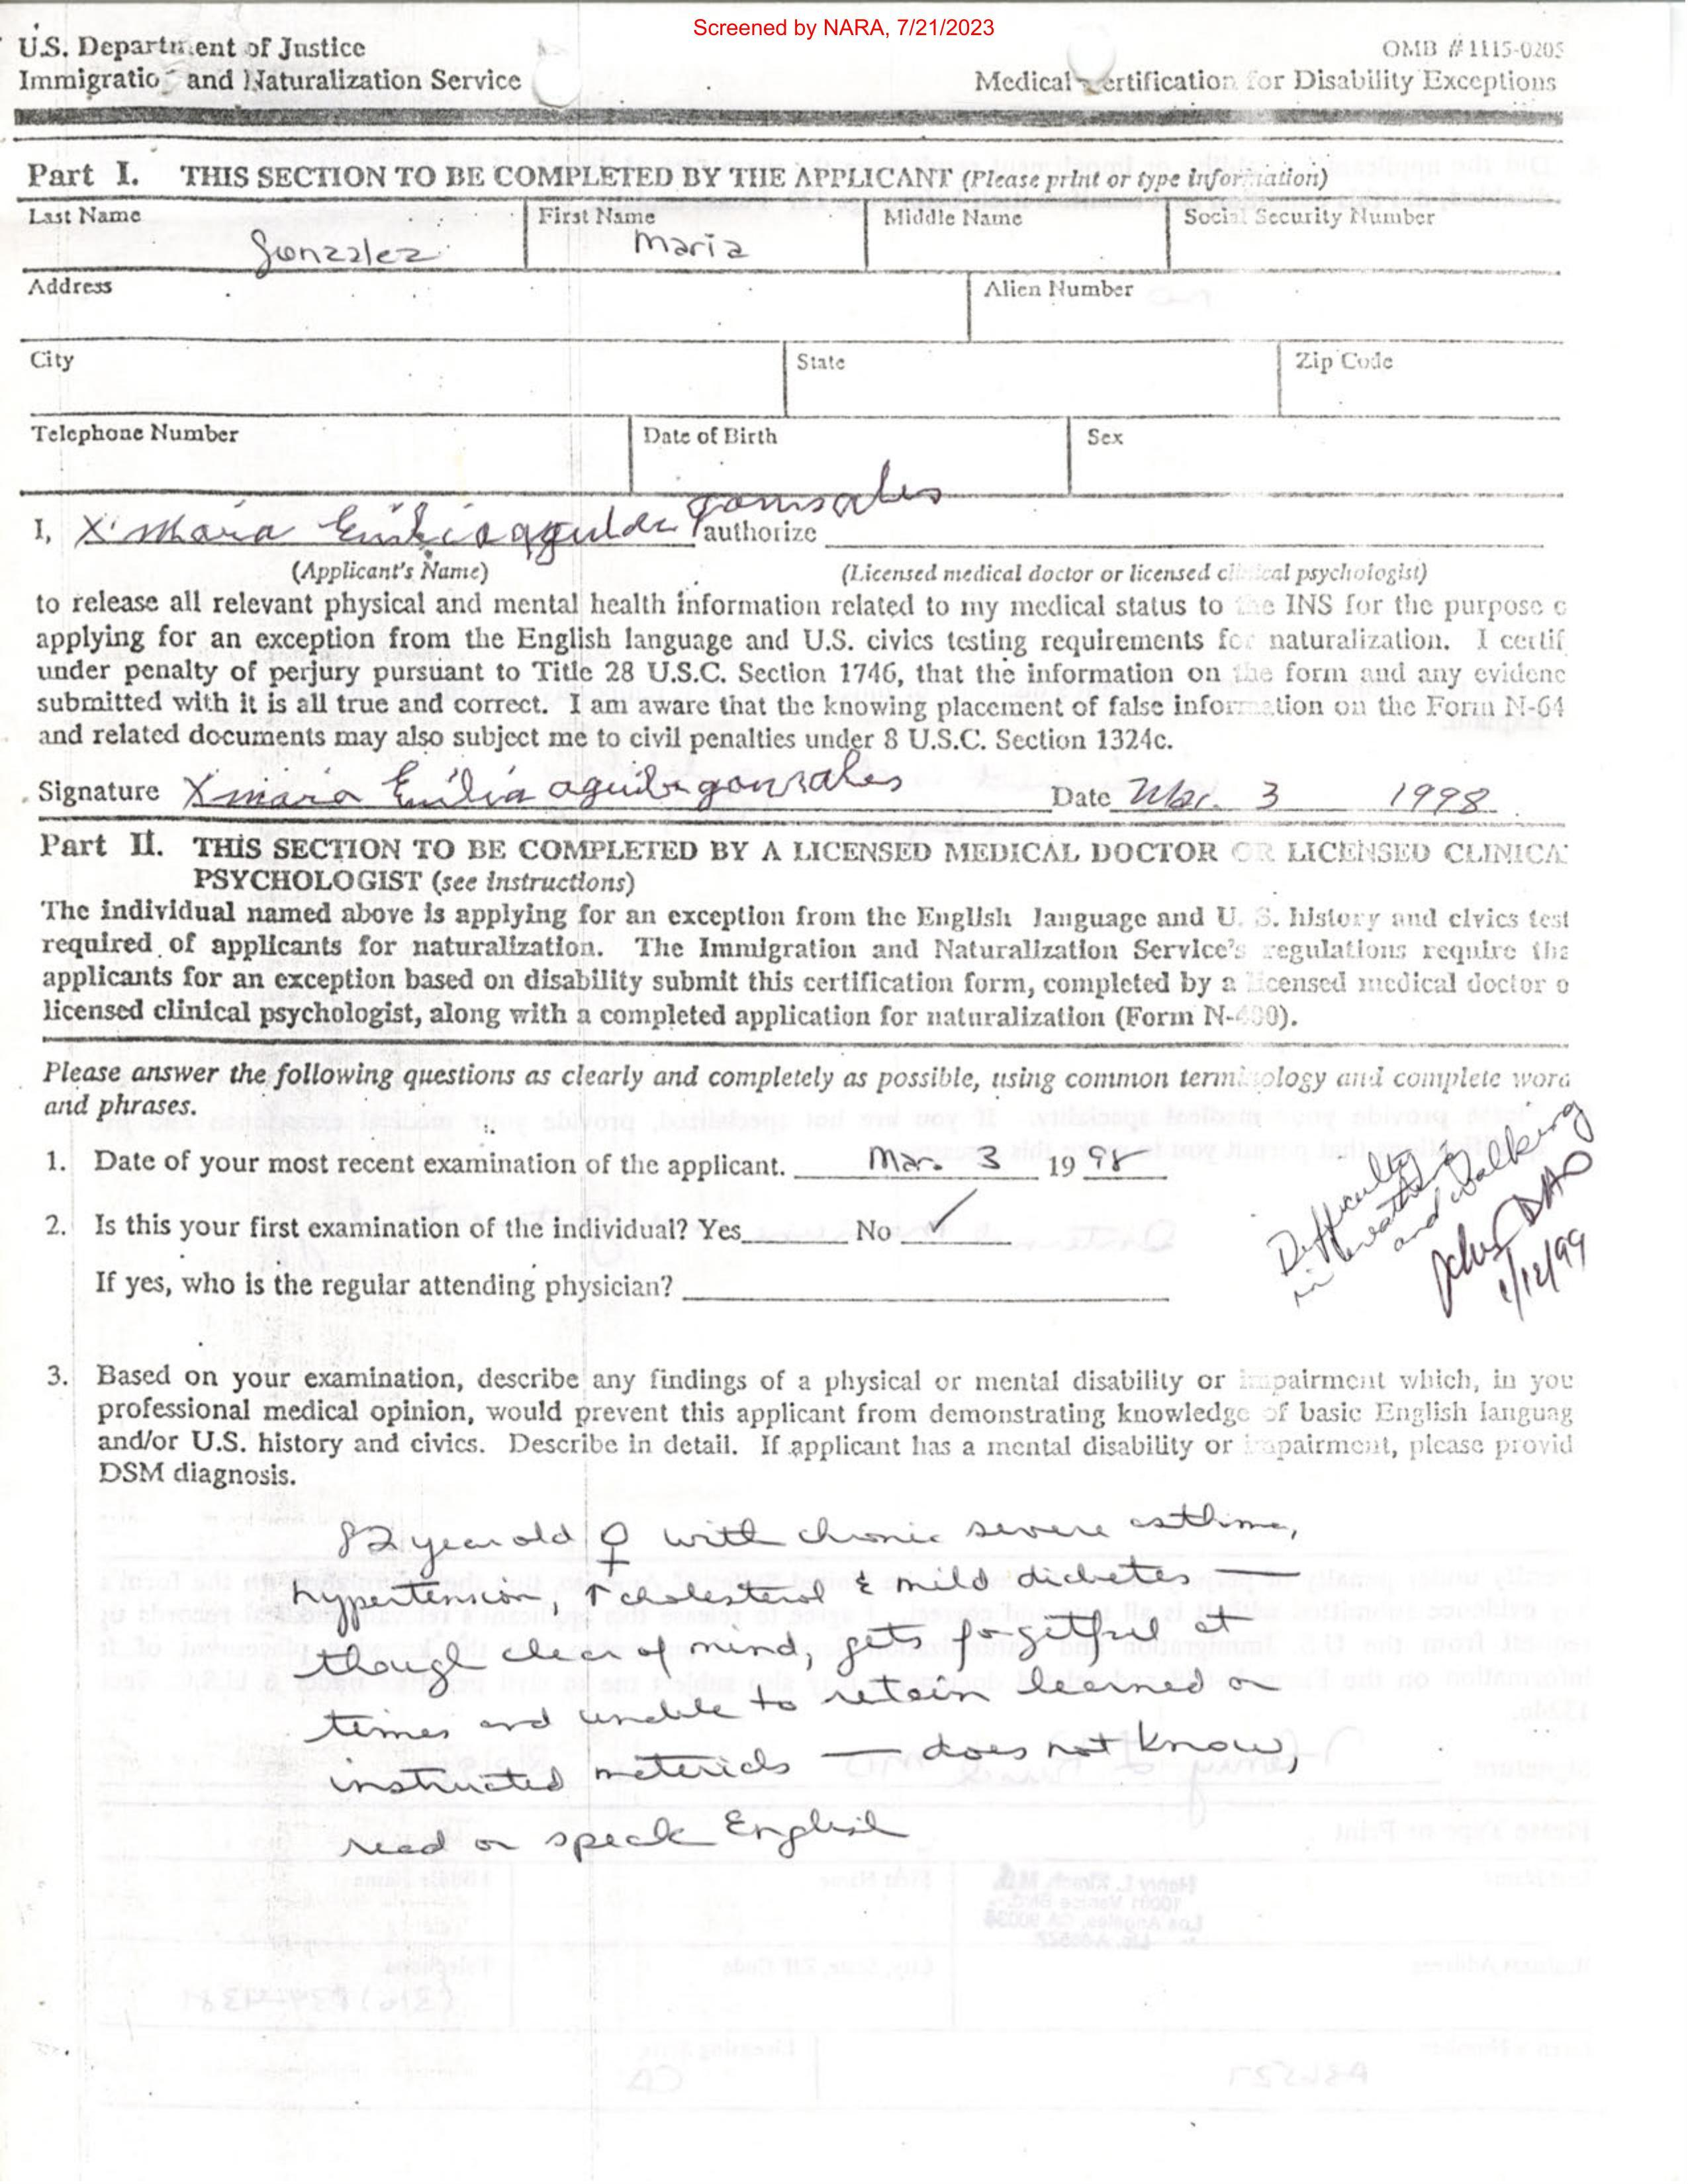 Screened by NARA, 7/21/2023
U.S. Department of Justice
Immigration and Naturalization Service
OMB #1115-0205
Medical Certification for Disability Exceptions
Part I. THIS SECTION TO BE COMPLETED BY THE APPLICANT (Please print or type information)
Last Name First Name Middle Name Social Security Number
Gonzalez Maria
Address Alien Number
City State Zip Code
Telephone Number Date of Birth Sex
I, X Maria Emilia gonsales authorize
(Applicant's Name) (Licensed medical doctor or licensed clinical psychologist)
to release all relevant physical and mental health information related to my medical status to the INS for the purpose o
applying for an exception from the English language and U.S. civics testing requirements for naturalization. I certif
under penalty of perjury pursuant to Title 28 U.S.C. Section 1746, that the information on the form and any evidenc
submitted with it is all true and correct. I am aware that the knowing placement of false information on the Form N-64
and related documents may also subject me to civil penalties under 8 U.S.C. Section 1324c.
Signature X maria Emilia gonzales Date Mar. 3 1998
Part II. THIS SECTION TO BE COMPLETED BY A LICENSED MEDICAL DOCTOR OR LICENSED CLINICA
PSYCHOLOGIST (see instructions)
The individual named above is applying for an exception from the English language and U. S. history and civics test
required of applicants for naturalization. The Immigration and Naturalization Service's regulations require tha
applicants for an exception based on disability submit this certification form, completed by a licensed medical doctor o
licensed clinical psychologist, along with a completed application for naturalization (Form N-400).
Please answer the following questions as clearly and completely as possible, using common terminology and complete word
and phrases.
1. Date of your most recent examination of the applicant. Mar. 3 19 98
2. Is this your first examination of the individual? Yes No ✓
If yes, who is the regular attending physician?
Difficulty
in breathing
and walking
DAO
1/12/99
3. Based on your examination, describe any findings of a physical or mental disability or impairment which, in you
professional medical opinion, would prevent this applicant from demonstrating knowledge of basic English languag
and/or U.S. history and civics. Describe in detail. If applicant has a mental disability or impairment, please provid
DSM diagnosis.
82 year old ♀ with chronic severe asthma,
hypertension, ↑ cholesterol & mild diabetes —
though clear of mind, gets forgetful at
times and unable to retain learned or
instructed materials — does not know,
read or speak English